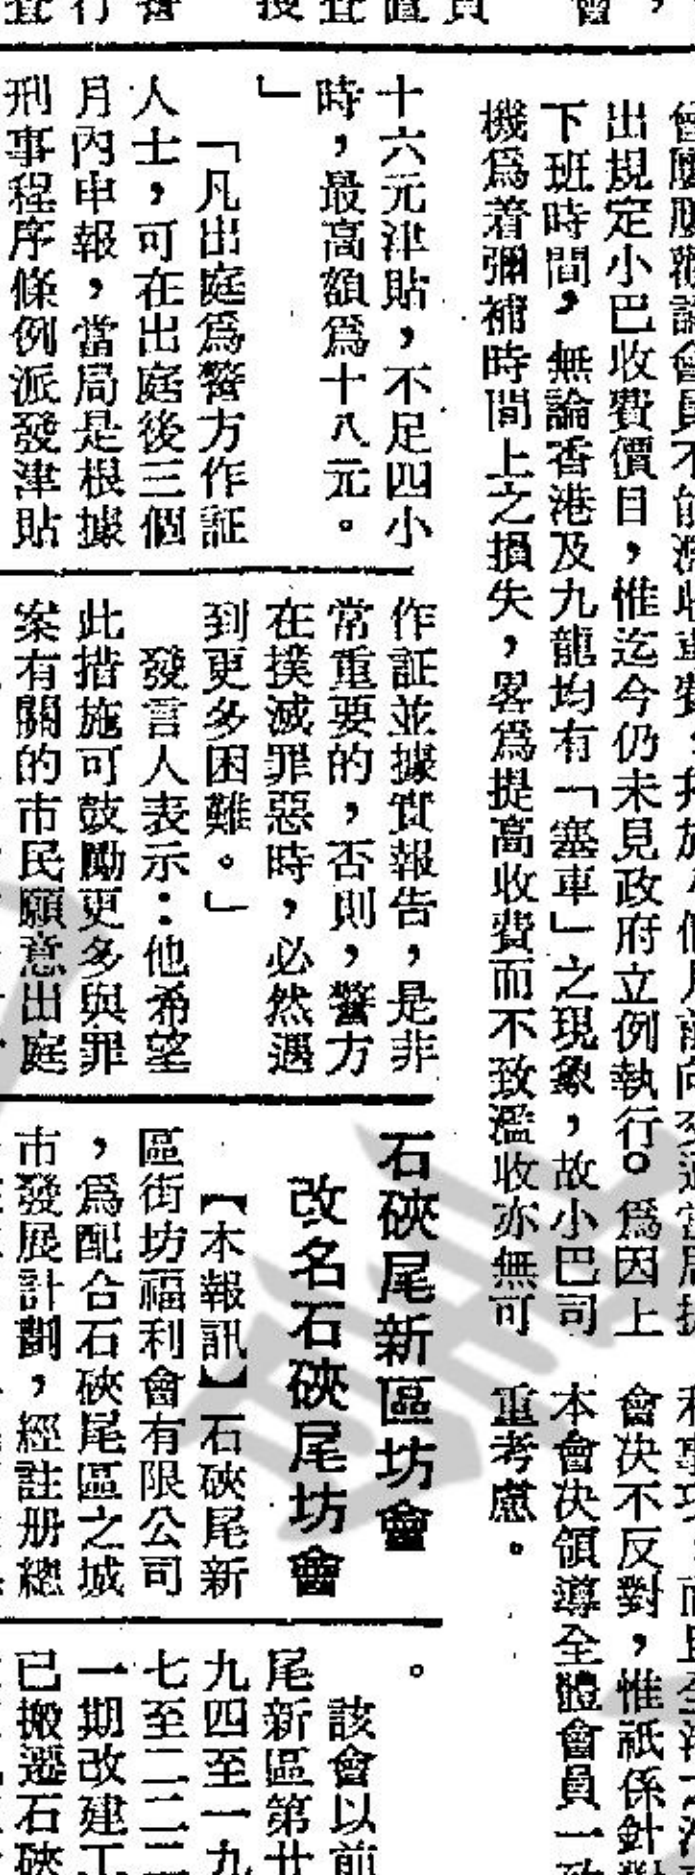 出規定小巴收費價目，惟迄今仍未見政府立例執行。爲因上
下班時間，無論香港及九龍均有「塞車」之現象，故小巴司
機爲着彌補時間上之損失，畧爲提高收費而不致濫收亦無可
會决不反對，惟祇係針對
本會决領導全體會員一致
重考慮。
十六元津貼，不足四小
時，最高額爲十八元。
」
「凡出庭爲警方作証
人士，可在出庭後三個
月內申報，當局是根據
刑事程序條例派發津貼
作証並據實報告，是非
常重要的，否則，警方
在撲滅罪惡時，必然遇
到更多困難。」
發言人表示：他希望
此措施可鼓勵更多與罪
案有關的市民願意出庭
石硤尾新區坊會
改名石硤尾坊會
【本報訊】石硤尾新
區街坊福利會有限公司
，爲配合石硤尾區之城
市發展計劃，經註册總
。
該會以前
尾新區第廿
九四至一九
七至二二
一期改建工
已搬遷石硤